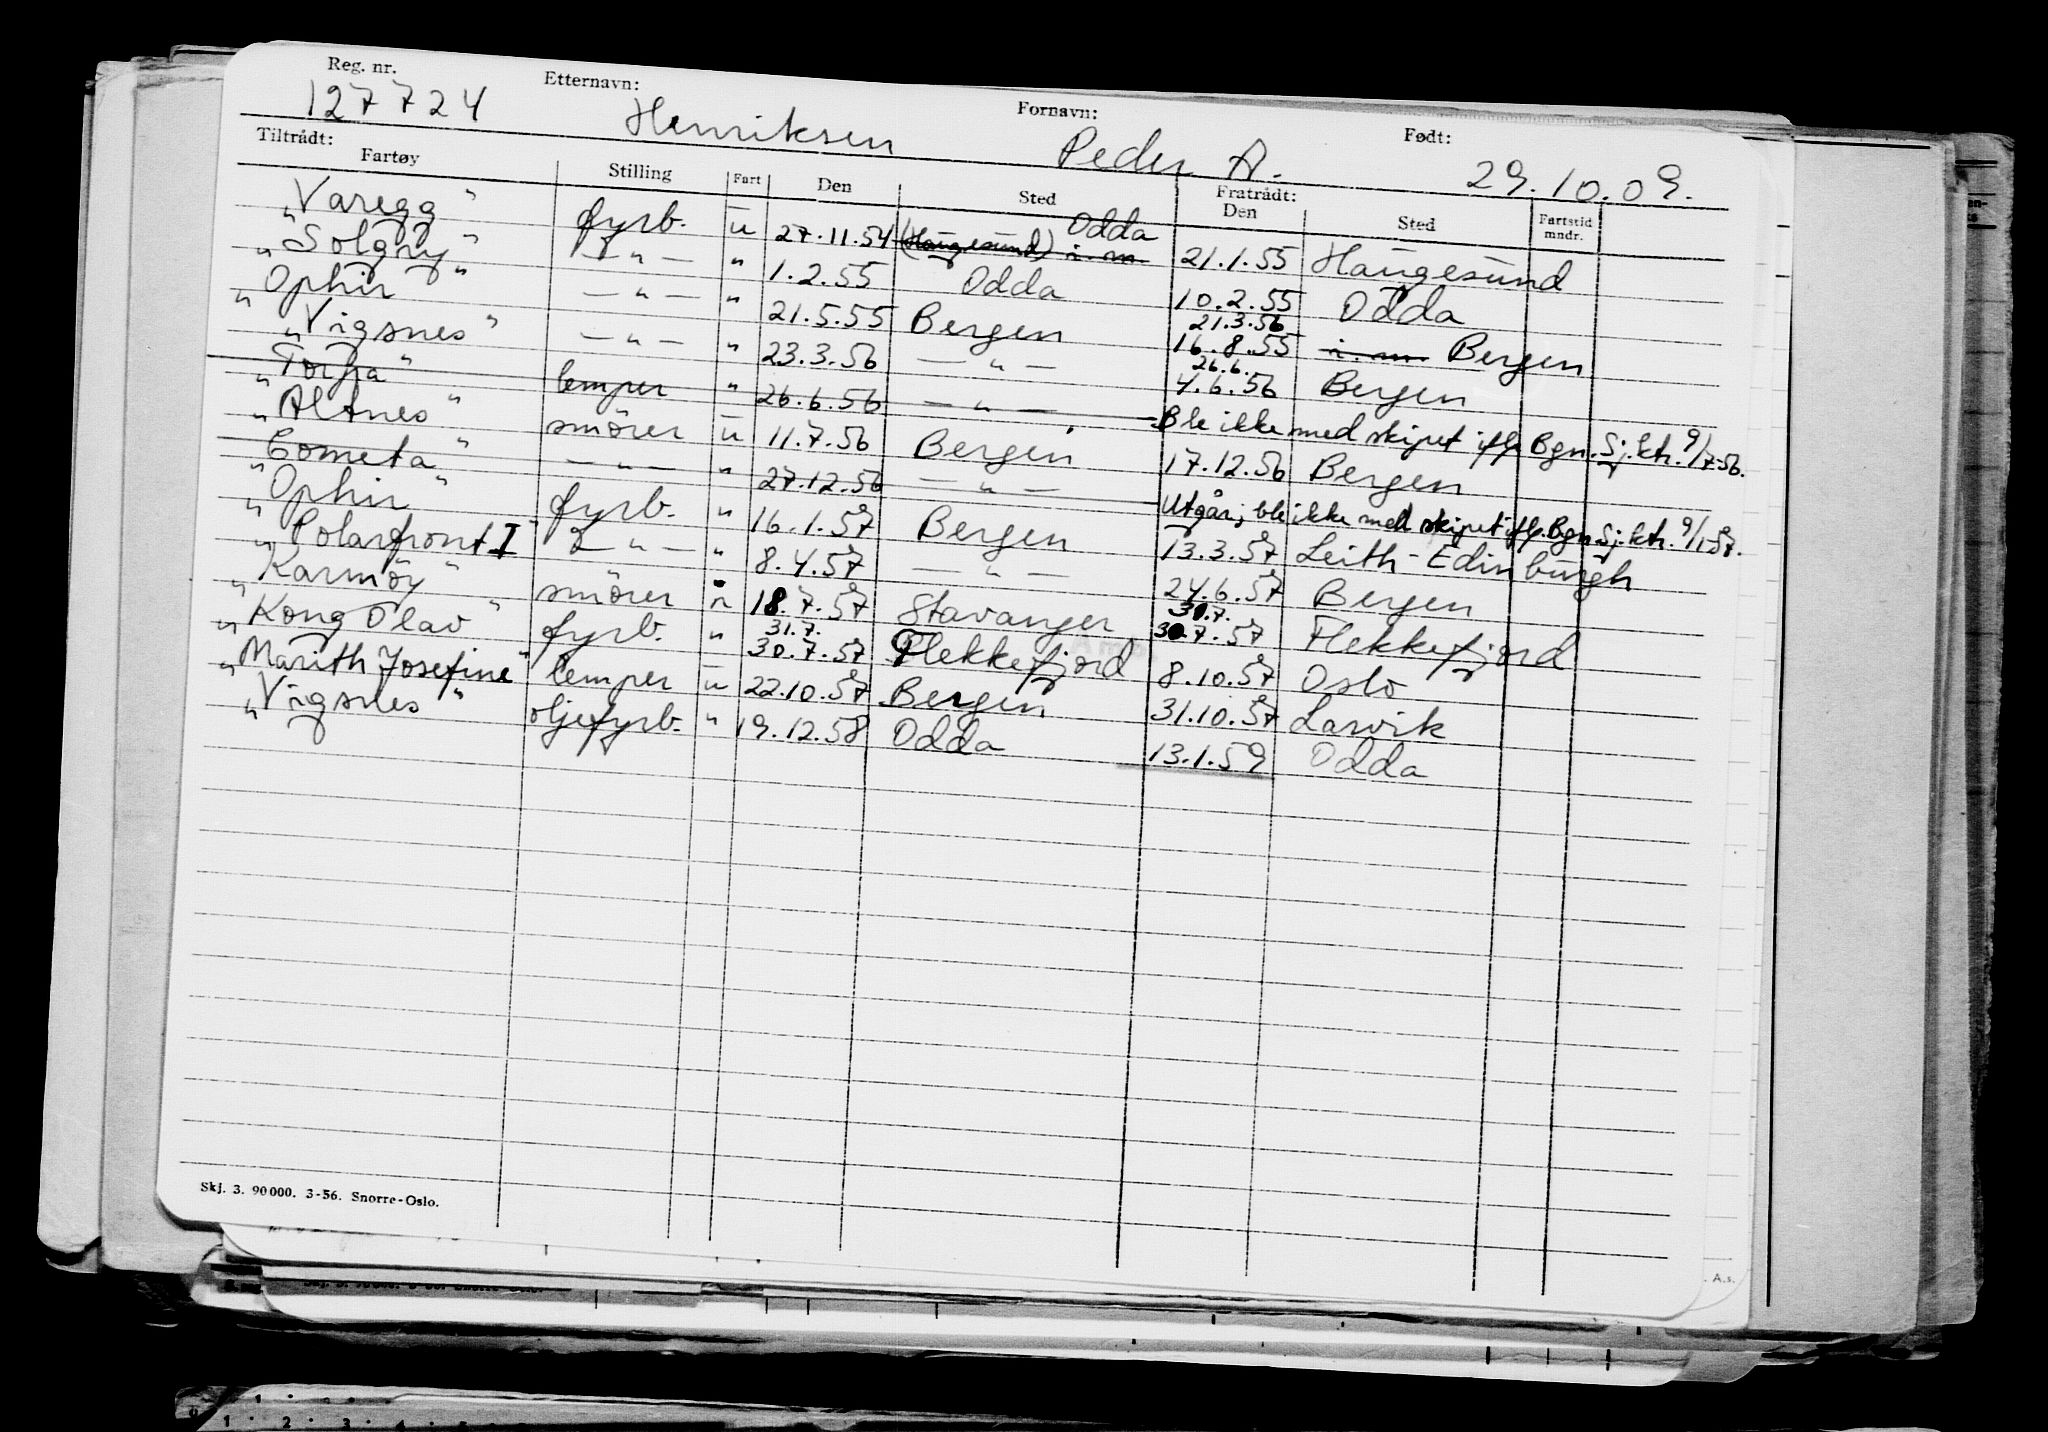 Reg. nr. Etternavn: Fornavn: Født:
127724 Henriksen Peder A. 29.10.09.
Tiltrådt: Fratrådt:
Fartøy Stilling Fart Den Sted Den Sted Fartstid mndr.
"Varegg" fyrb. u 27.11.54 (Haugesund) i. m Odda 21.1.55 Haugesund
"Solgry" — " — " 1.2.55 Odda 10.2.55 Odda
"Ophir" — " — " 21.5.55 Bergen 21.3.56 16.8.55 i. m Bergen
"Vigsnes" — " — " 23.3.56 — " — 26.6. 4.6.56 Bergen
"Torfra" lemper " 26.6.56 — " — Ble ikke med skipet iflg. Bgn. Sj.ktr. 9/7-56.
"Altnes" smörer u 11.7.56 Bergen 17.12.56 Bergen
"Cometa" — " — " 27.12.56 — " — Utgår; ble ikke med skipet iflg. Bgn. Sj.ktr. 9/1-57.
"Ophir" fyrb. " 16.1.57 Bergen 13.3.57 Leith-Edinburgh
"Polarfront I" — " — " 8.4.57 — " — 24.6.57 Bergen
"Karmöy" smörer " 18.7.57 Stavanger 30.7. 30.7.57 Flekkefjord
"Kong Olav" fyrb. " 31.7. 30.7.57 Flekkefjord 8.10.57 Oslo
"Marith Josefine" lemper u 22.10.57 Bergen 31.10.57 Larvik
"Vigsnes" oljefyrb. " 19.12.58 Odda 13.1.59 Odda
Skj. 3. 90000. 3-56. Snorre-Oslo.
. A.s.